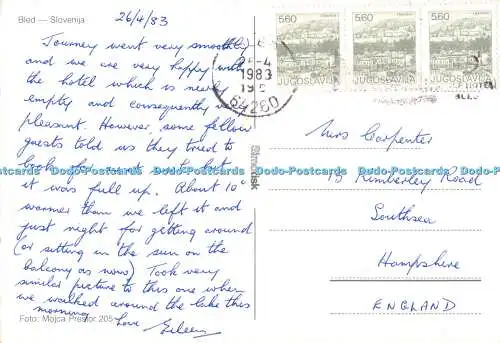 Bled — Slovenija
26/4/83
Journey went very smoothly
and we are very happy with
the hotel which is nearly
empty and consequently v.
pleasant. However, some fellow
guests told us they tried to
book for and
it was full up. About 10°
warmer than we left it and
just right for getting around
(or sitting in the sun on the
balcony as now) Took very
similar picture to this one when
we walked around the lake this
morning. Love Eileen
Foto: Mojca Prestor 205
24-4
1983
64260
5.60
JUGOSLAVIJA
5.60
JUGOSLAVIJA
5.60
JUGOSLAVIJA
Mrs Carpenter
13 Kimberley Road
Southsea
Hampshire
ENGLAND
Postcards Postcards Postcards Postcards Postcards Postcards